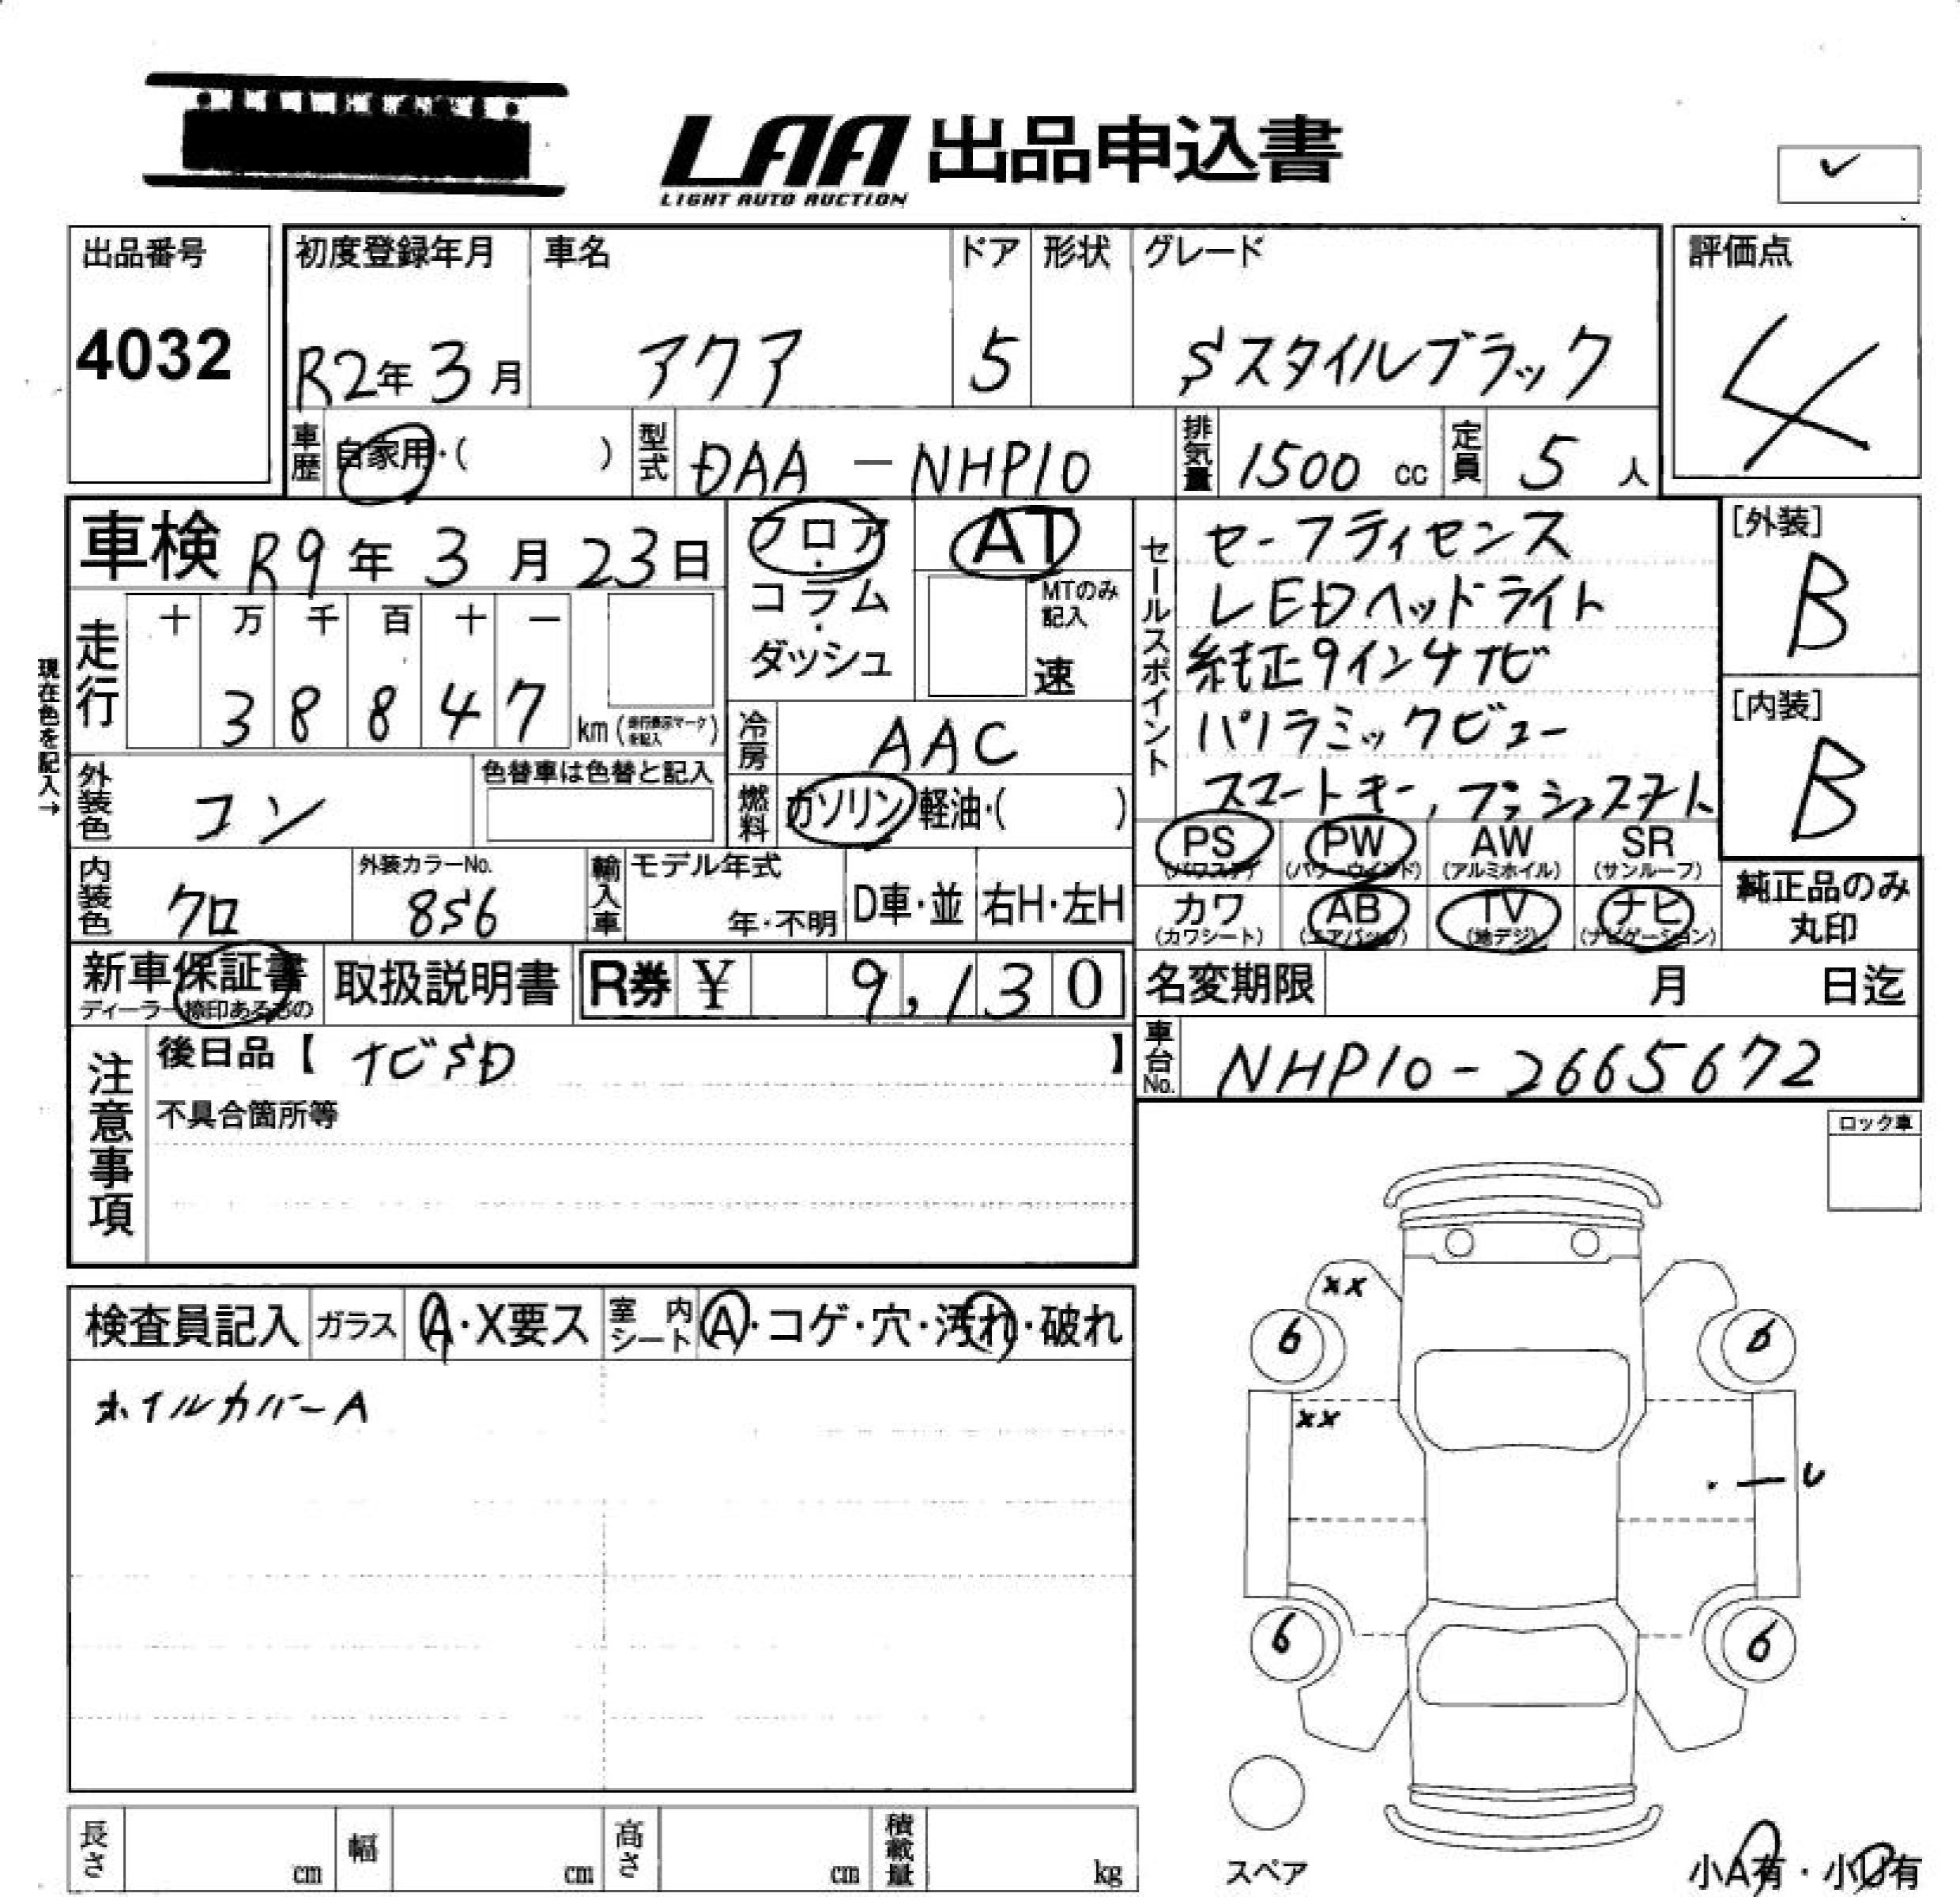 LAA 出品申込書
LIGHT AUTO AUCTION
✓
出品番号
4032
初度登録年月
R2年3月
車名
アクア
ドア
5
形状
グレード
Sスタイルブラック
評価点
4
車歴
自家用・( )
型式
DAA-NHP10
排気量
1500 cc
定員
5人
車検 R9年3月23日
フロア・コラム・ダッシュ
AT
MTのみ記入
速
セールスポイント
セーフティセンス
LEDヘッドライト
純正9インチナビ
パノラミックビュー
スマートキー, プッシュスタート
[外装]
B
[内装]
B
現在色を記入→
走行
十 万 千 百 十 一
3 8 8 4 7 km
冷房
AAC
外装色
コン
色替車は色替と記入
燃料
ガソリン・軽油・( )
PS AW SR
PW (パワーウインド) (アルミホイル) (サンルーフ)
カワ AB TV ナビ
(カワシート) (エアバッグ) (地デジ) (ナビゲーション)
純正品のみ
丸印
内装色
クロ
外装カラーNo.
8S6
輸入車
モデル年式
年・不明
D車・並
右H・左H
新車保証書
ディーラー捺印あるもの
取扱説明書
R券 ¥ 9,130
名変期限 月 日迄
注意事項
後日品【 ナビSD 】
不具合箇所等
車台No.
NHP10-2665672
ロック車
検査員記入
ガラス
A・X要ス
室内シート
A・コゲ・穴・汚れ・破れ
ホイルカバーA
XX
6 6
XX
・ー U
6 6
スペア
小A有・小U有
長さ cm
幅 cm
高さ cm
積載量 kg